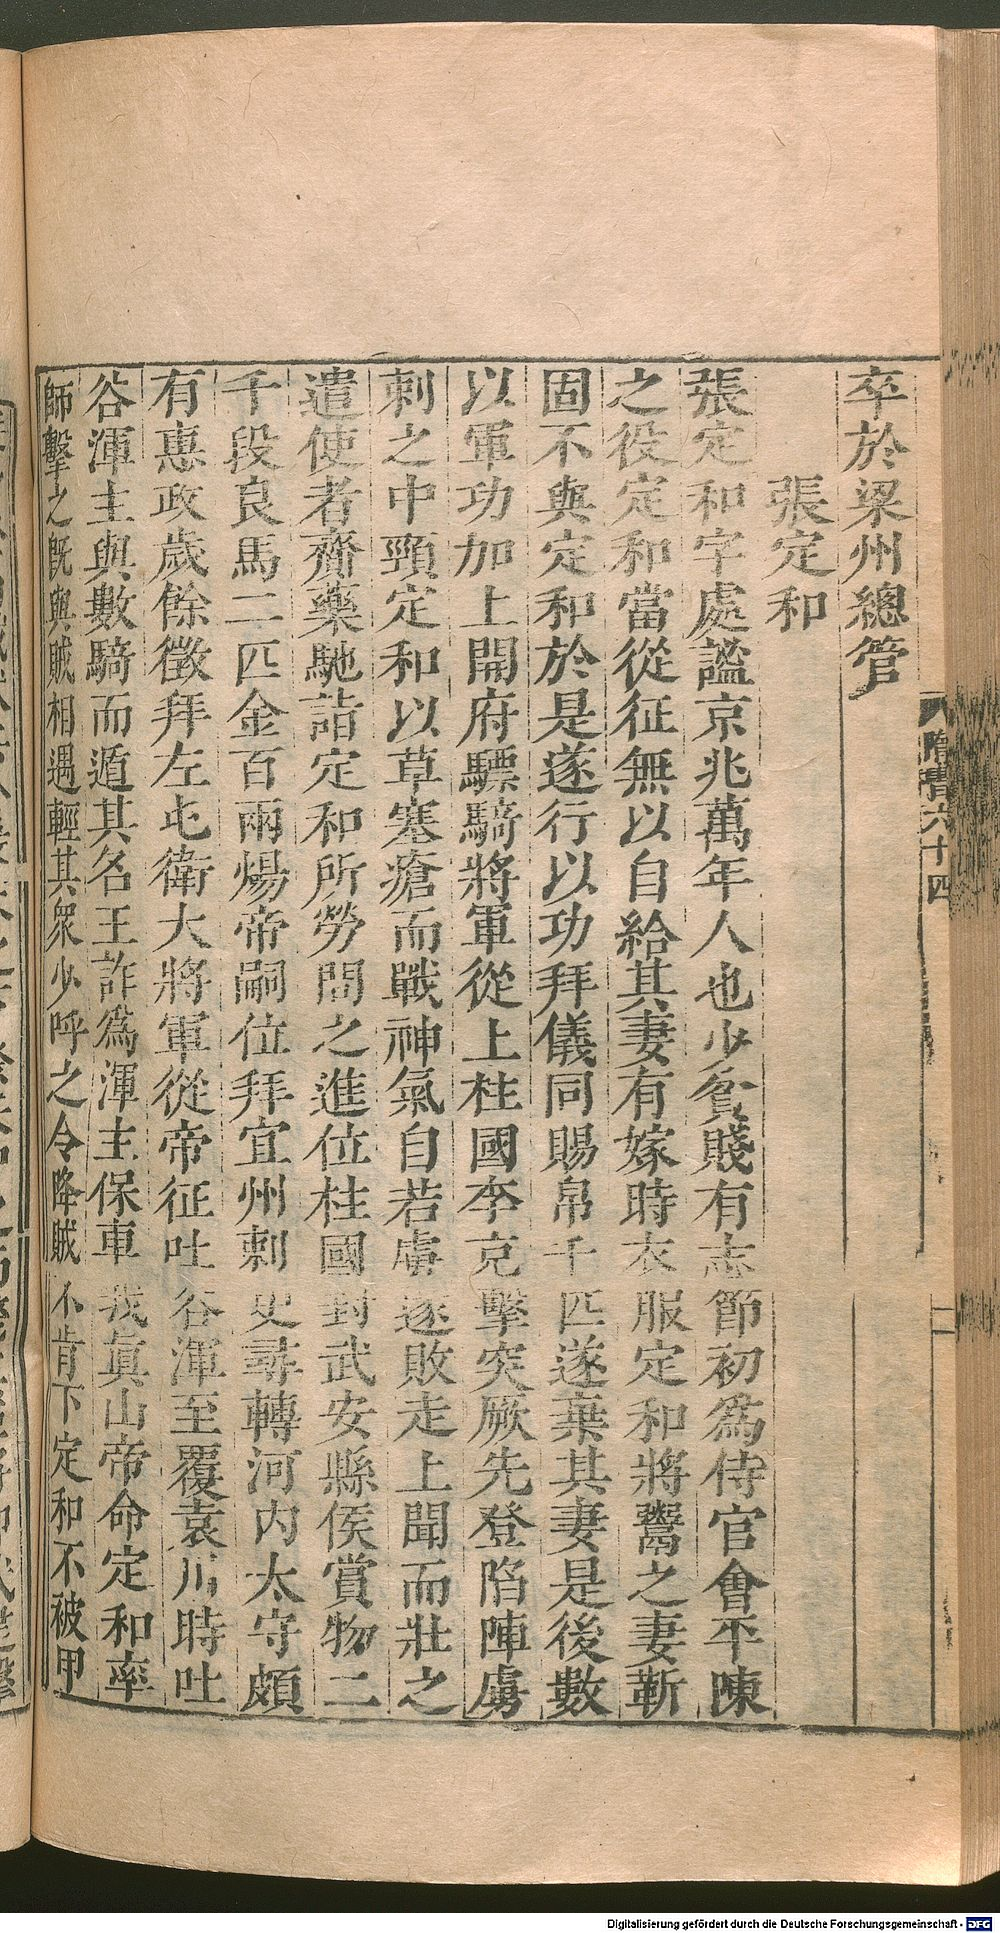 隋書六十四
二
卒於梁州總管
張定和
張定和字處謐京兆萬年人也少貧賤有志節初爲侍官會平陳
之役定和當從征無以自給其妻有嫁時衣服定和將鬻之妻靳
固不與定和於是遂行以功拜儀同賜帛千匹遂棄其妻是後數
以軍功加上開府驃騎將軍從上柱國李充擊突厥先登陷陣虜
刺之中頸定和以草塞瘡而戰神氣自若虜遂敗走上聞而壯之
遣使者齎藥馳詣定和所勞問之進位柱國封武安縣侯賞物二
千段良馬二匹金百兩煬帝嗣位拜宜州刺史尋轉河內太守頗
有惠政歲餘徵拜左屯衛大將軍從帝征吐谷渾至覆袁川時吐
谷渾主與數騎而遁其名王詐爲渾主保車我真山帝命定和率
師擊之既與賊相遇輕其衆少呼之令降賊不肯下定和不被甲
Digitalisierung gefördert durch die Deutsche Forschungsgemeinschaft - DFG